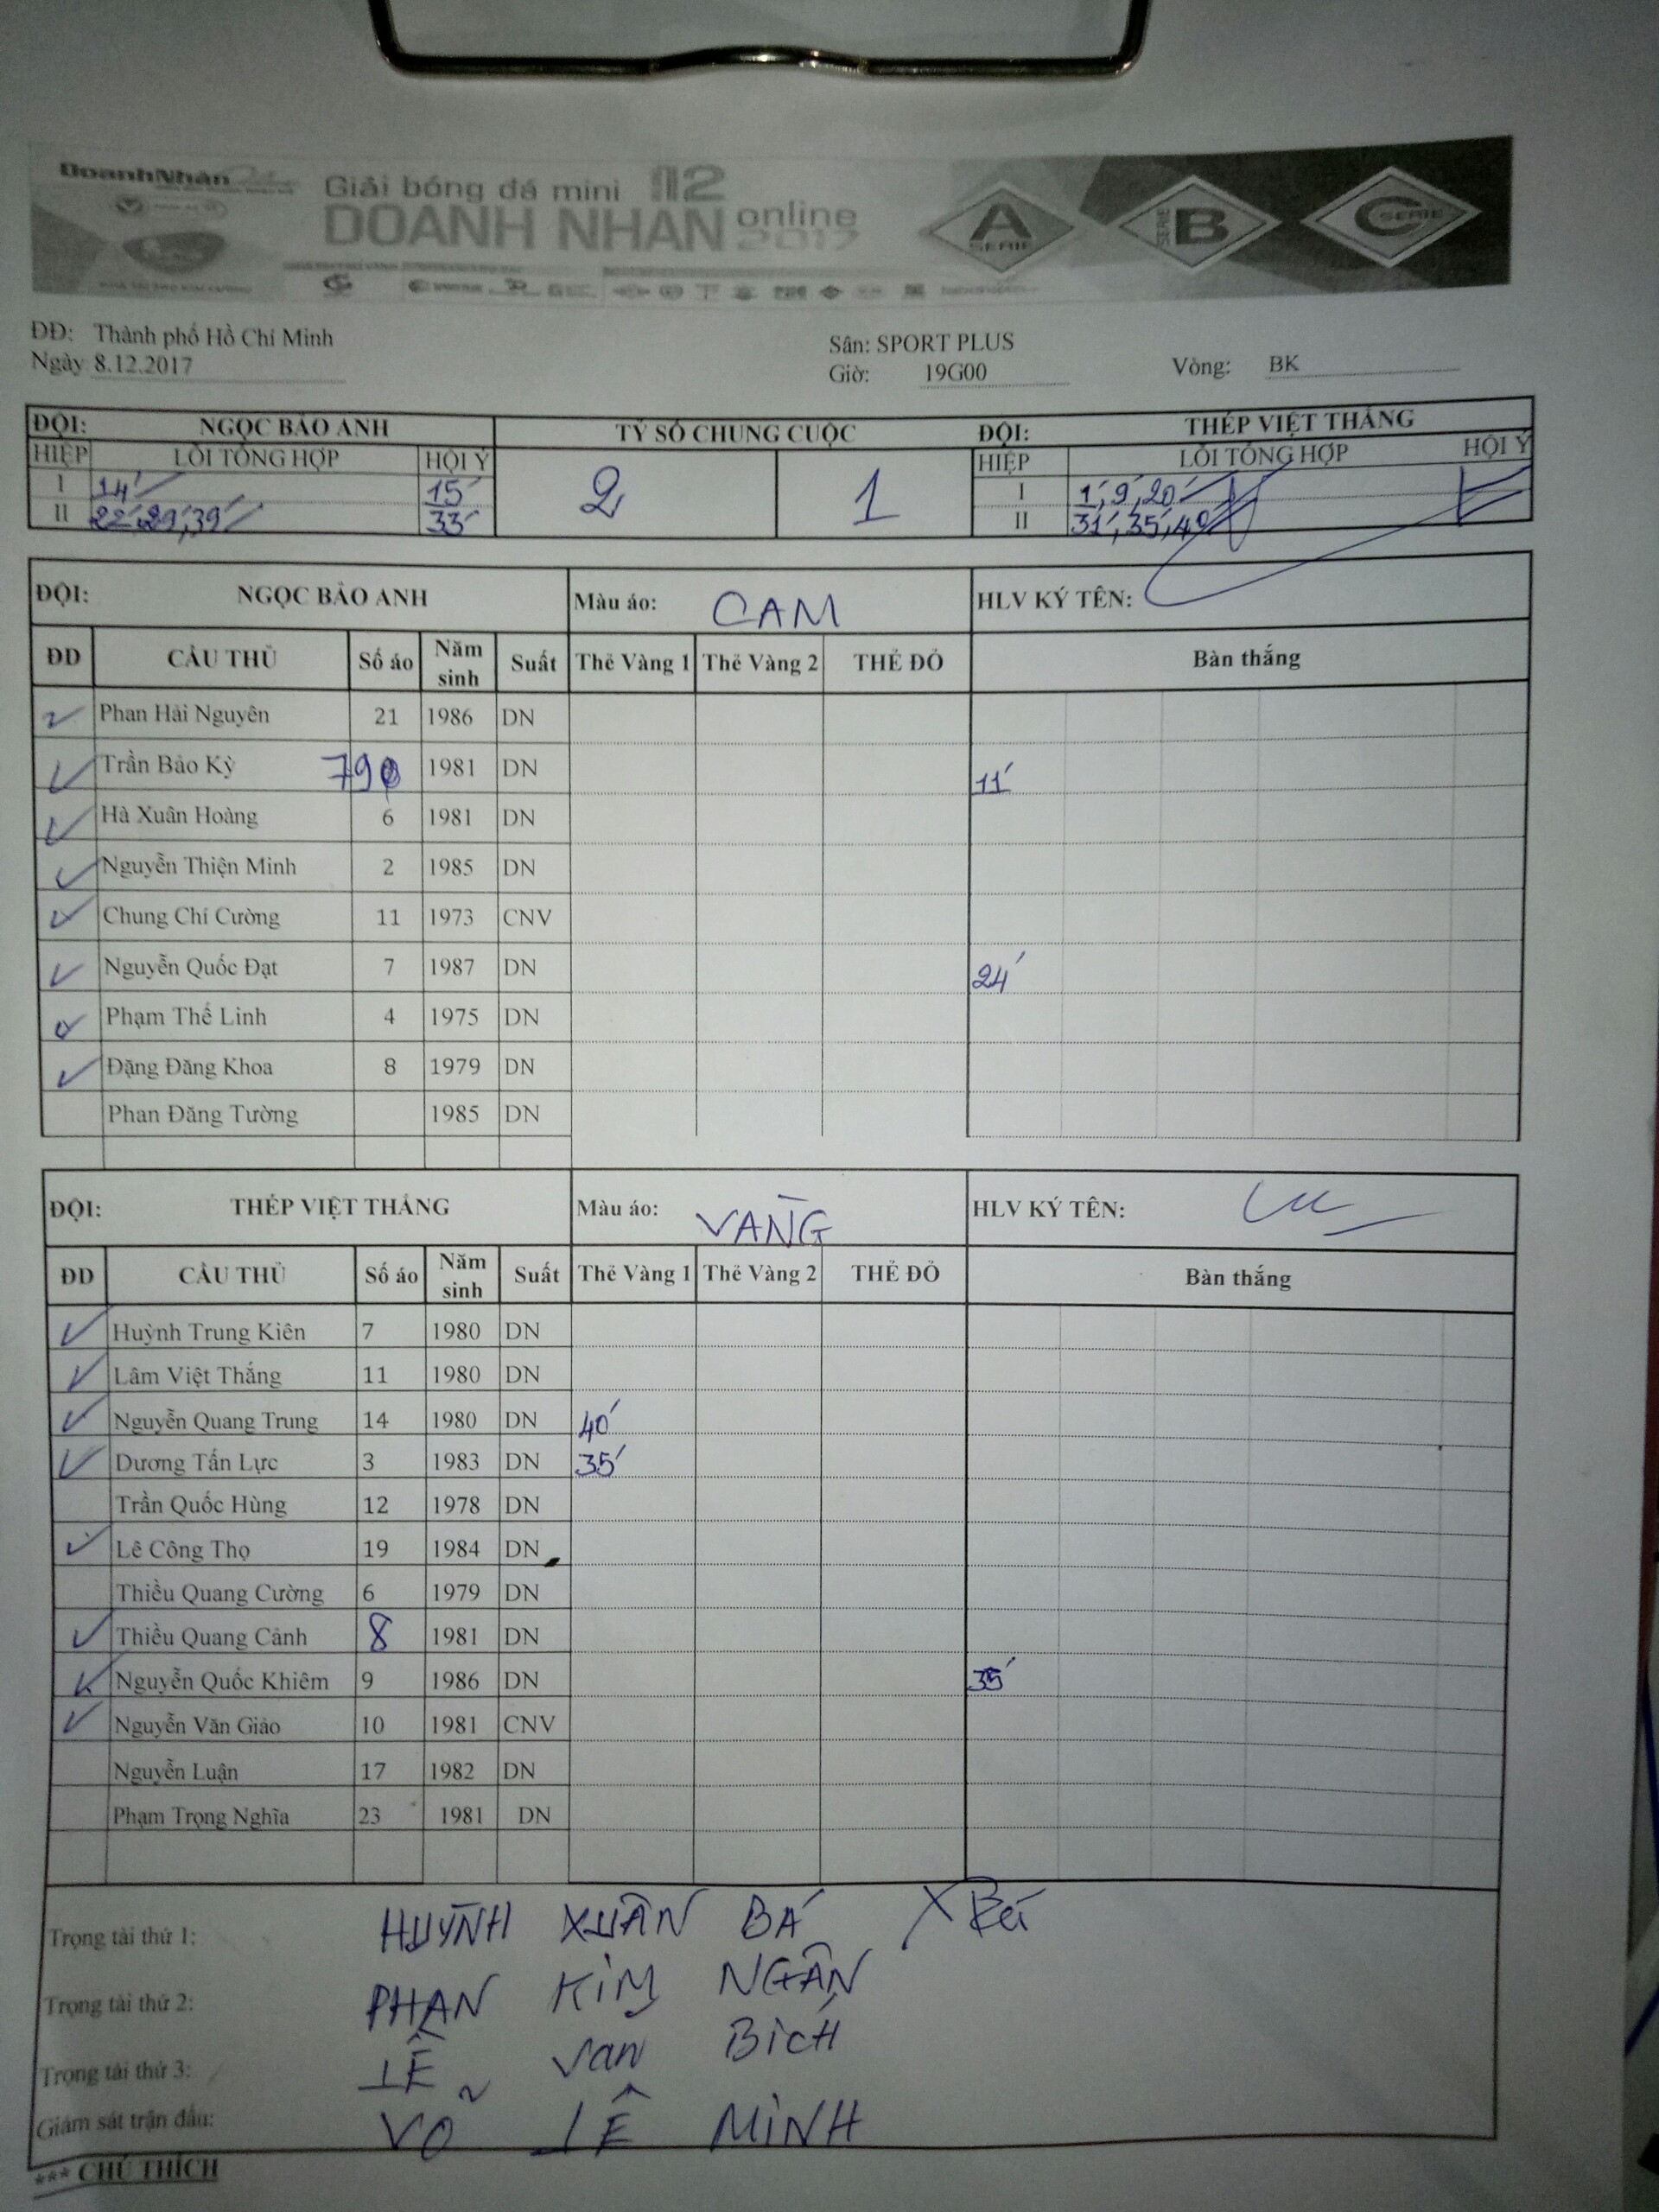 DoanhNhân
Giải bóng đá mini 112
DOANH NHÂN online 2017
A SERIE
SERIE B
C SERIE
ĐĐ: Thành phố Hồ Chí Minh
Sân: SPORT PLUS
Ngày 8.12.2017
Giờ: 19G00
Vòng: BK
ĐỘI: NGỌC BẢO ANH TỶ SỐ CHUNG CUỘC ĐỘI: THÉP VIỆT THẮNG
HIỆP LỖI TỔNG HỢP HỘI Ý 2 1 HIỆP LỖI TỔNG HỢP HỘI Ý
I 14' 15' I 1', 9', 20'
II 22', 29', 39' 33' II 31', 35', 40'
ĐỘI: NGỌC BẢO ANH Màu áo: CAM HLV KÝ TÊN:
ĐD CẦU THỦ Số áo Năm sinh Suất Thẻ Vàng 1 Thẻ Vàng 2 THẺ ĐỎ Bàn thắng
Phan Hải Nguyên 21 1986 DN
Trần Bảo Kỳ 1981 DN 11'
Hà Xuân Hoàng 6 1981 DN
Nguyễn Thiện Minh 2 1985 DN
Chung Chí Cường 11 1973 CNV
Nguyễn Quốc Đạt 7 1987 DN 24'
Phạm Thế Linh 4 1975 DN
Đặng Đăng Khoa 8 1979 DN
Phan Đăng Tường 1985 DN
ĐỘI: THÉP VIỆT THẮNG Màu áo: VÀNG HLV KÝ TÊN:
ĐD CẦU THỦ Số áo Năm sinh Suất Thẻ Vàng 1 Thẻ Vàng 2 THẺ ĐỎ Bàn thắng
Huỳnh Trung Kiên 7 1980 DN
Lâm Việt Thắng 11 1980 DN
Nguyễn Quang Trung 14 1980 DN 40'
Dương Tấn Lực 3 1983 DN 35'
Trần Quốc Hùng 12 1978 DN
Lê Công Thọ 19 1984 DN
Thiều Quang Cường 6 1979 DN
Thiều Quang Cảnh 8 1981 DN
Nguyễn Quốc Khiêm 9 1986 DN 35'
Nguyễn Văn Giảo 10 1981 CNV
Nguyễn Luận 17 1982 DN
Phạm Trọng Nghĩa 23 1981 DN
Trọng tài thứ 1: HUỲNH XUÂN BÁ
Trọng tài thứ 2: PHAN KIM NGÂN
Trọng tài thứ 3: LÊ Van BÍCH
Giám sát trận đấu: VÕ LÊ MINH
*** CHÚ THÍCH